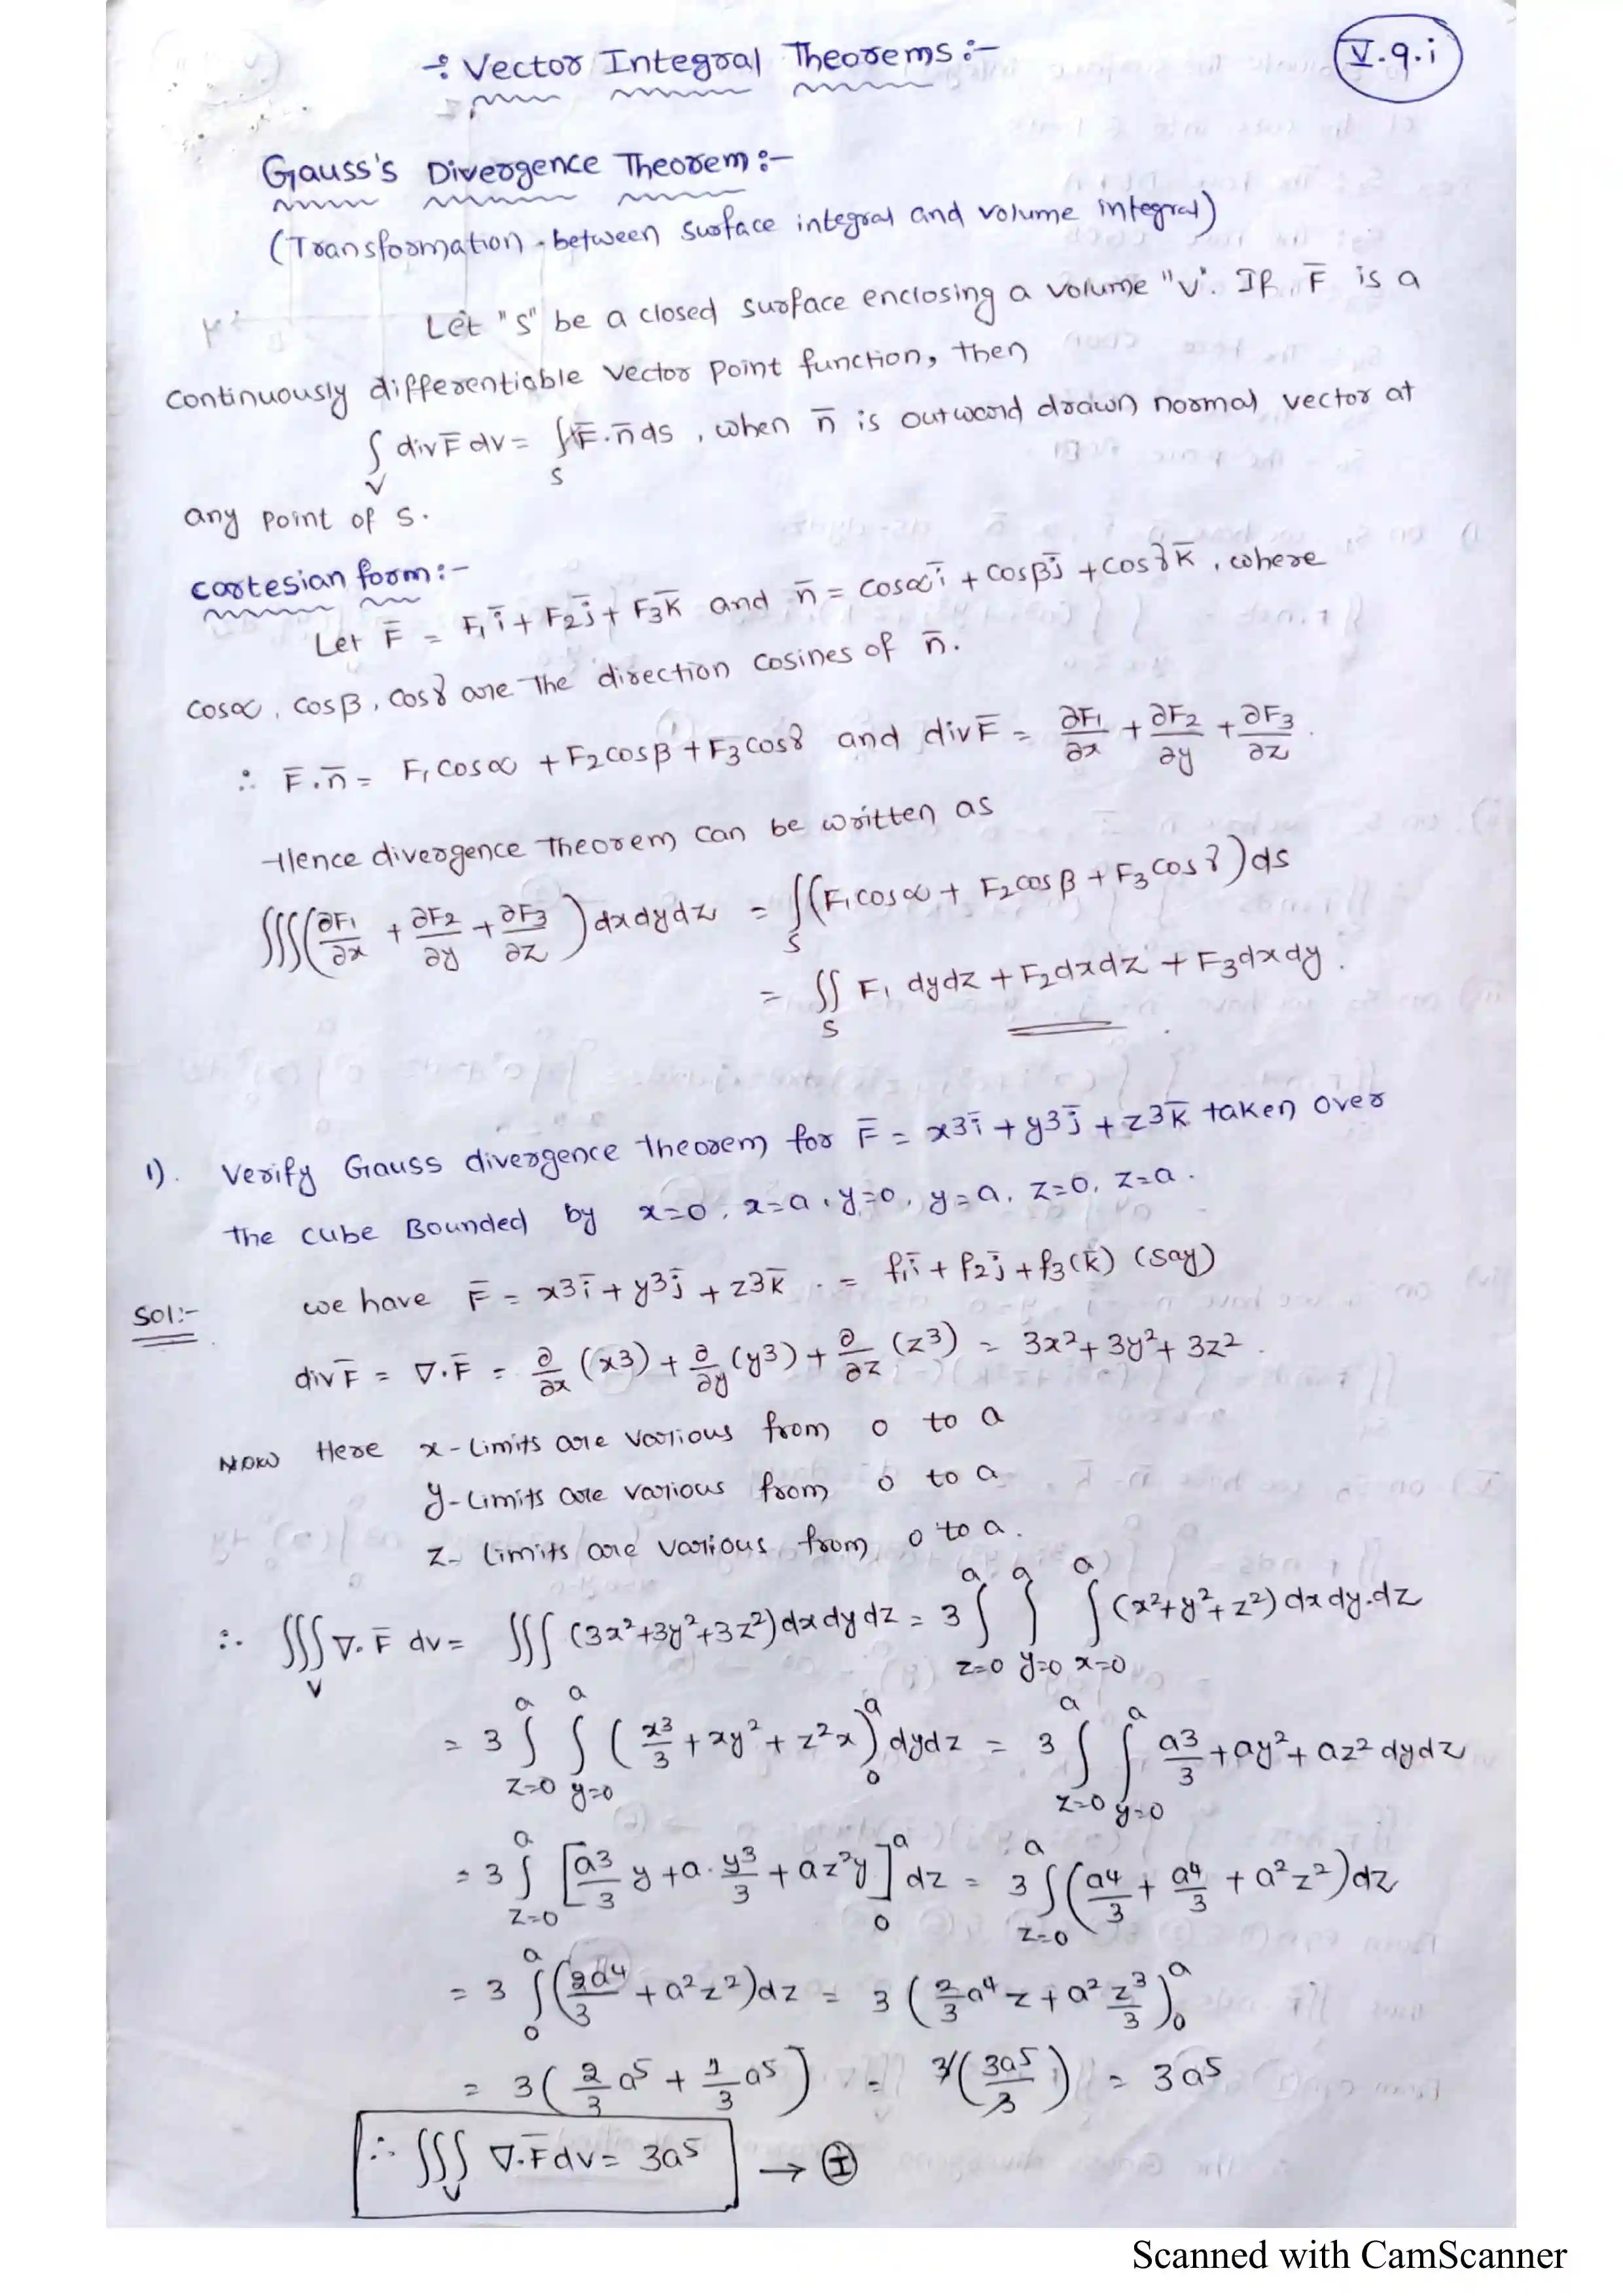 -: Vector Integral Theorems :-
V.9.i
Gauss's Divergence Theorem :-
(Transformation between surface integral and volume integral)
Let "S" be a closed surface enclosing a volume "V". If F̅ is a
continuously differentiable vector point function, then
∫_V div F̅ dv = ∫_S F̅.n̅ ds , when n̅ is outward drawn normal vector at
any point of S.
Cartesian form :-
Let F̅ = F₁i̅ + F₂j̅ + F₃k̅ and n̅ = cosα i̅ + cosβ j̅ + cosγ k̅ , where
cosα, cosβ, cosγ are the direction cosines of n̅.
∴ F̅.n̅ = F₁cosα + F₂cosβ + F₃cosγ and div F̅ = ∂F₁/∂x + ∂F₂/∂y + ∂F₃/∂z .
Hence divergence theorem can be written as
∫∫∫(∂F₁/∂x + ∂F₂/∂y + ∂F₃/∂z) dxdydz = ∫_S (F₁cosα + F₂cosβ + F₃cosγ) ds
= ∫∫_S F₁ dydz + F₂dxdz + F₃dxdy .
1). Verify Gauss divergence theorem for F̅ = x³i̅ + y³j̅ + z³k̅ taken over
the cube Bounded by x=0, x=a, y=0, y=a, z=0, z=a.
Sol:- we have F̅ = x³i̅ + y³j̅ + z³k̅ . = f₁i̅ + f₂j̅ + f₃(k̅) (say)
div F̅ = ∇.F̅ = ∂/∂x (x³) + ∂/∂y (y³) + ∂/∂z (z³) = 3x² + 3y² + 3z² .
Now Here x-Limits are various from 0 to a
y-Limits are various from 0 to a
z- Limits are various from 0 to a.
∴ ∫∫∫_V ∇.F̅ dv = ∫∫∫ (3x²+3y²+3z²) dxdydz = 3 ∫_{z=0}^a ∫_{y=0}^a ∫_{x=0}^a (x²+y²+z²) dx dy.dz
= 3 ∫_{z=0}^a ∫_{y=0}^a (x³/3 + xy² + z²x)_0^a dydz = 3 ∫_{z=0}^a ∫_{y=0}^a a³/3 + ay² + az² dydz
= 3 ∫_{z=0}^a [a³/3 y + a.y³/3 + az²y]_0^a dz = 3 ∫_{z=0}^a (a⁴/3 + a⁴/3 + a²z²) dz
= 3 ∫_0^a (2a⁴/3 + a²z²) dz = 3 (2/3 a⁴z + a² z³/3)_0^a
= 3(2/3 a⁵ + 1/3 a⁵) = 3(3a⁵/3) = 3a⁵
∴ ∫∫∫_V ∇.F̅ dv = 3a⁵ → Ⓘ
Scanned with CamScanner